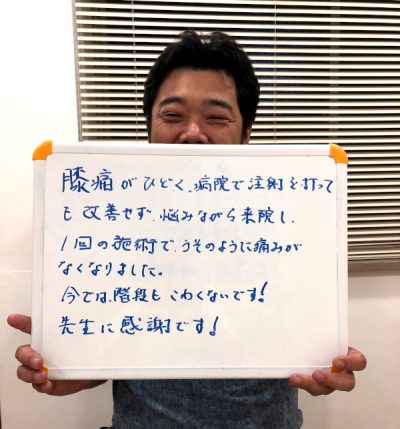 膝痛がひどく、病院で注射を打って
も改善せず、悩みながら来院し、
1回の施術で、うそのように痛みが
なくなりました。
今では、階段もこわくないです!
先生に感謝です!